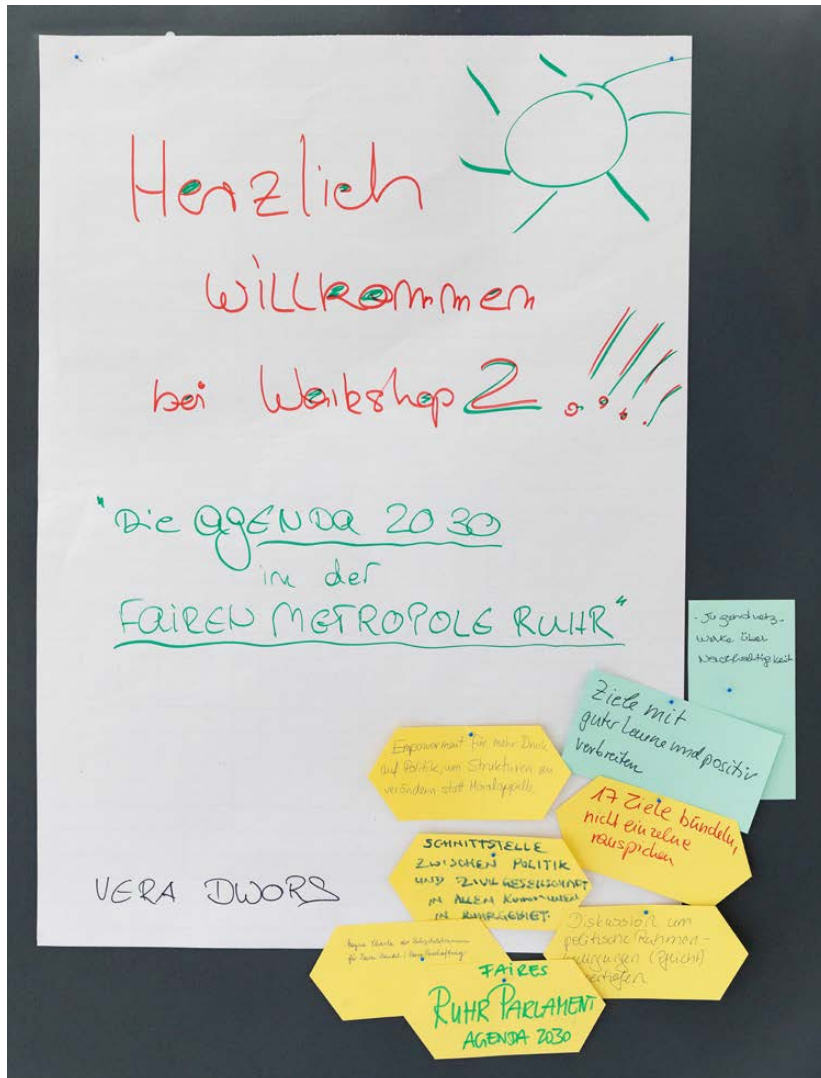 Herzlich
Willkommen
bei Workshop 2 !!!!
"Die AGENDA 2030
in der
FAIREN METROPOLE RUHR"
VERA DWORS
- Jugendnetz-
werke über
Nachhaltigkeit
Ziele mit
guter Laune und positiv
verbreiten
Empowerment für mehr Druck
auf Politik, um Strukturen zu
verändern statt Moralappelle
17 Ziele bündeln,
nicht einzelne
rauspicken
SCHNITTSTELLE
ZWISCHEN POLITIK
UND ZIVILGESELLSCHAFT
IN ALLEN KOMMUNEN
IN RUHRGEBIET.
Diskussion um
politische Rahmen-
(Pflicht)
vertiefen
für
FAIRES
RUHR PARLAMENT
AGENDA 2030